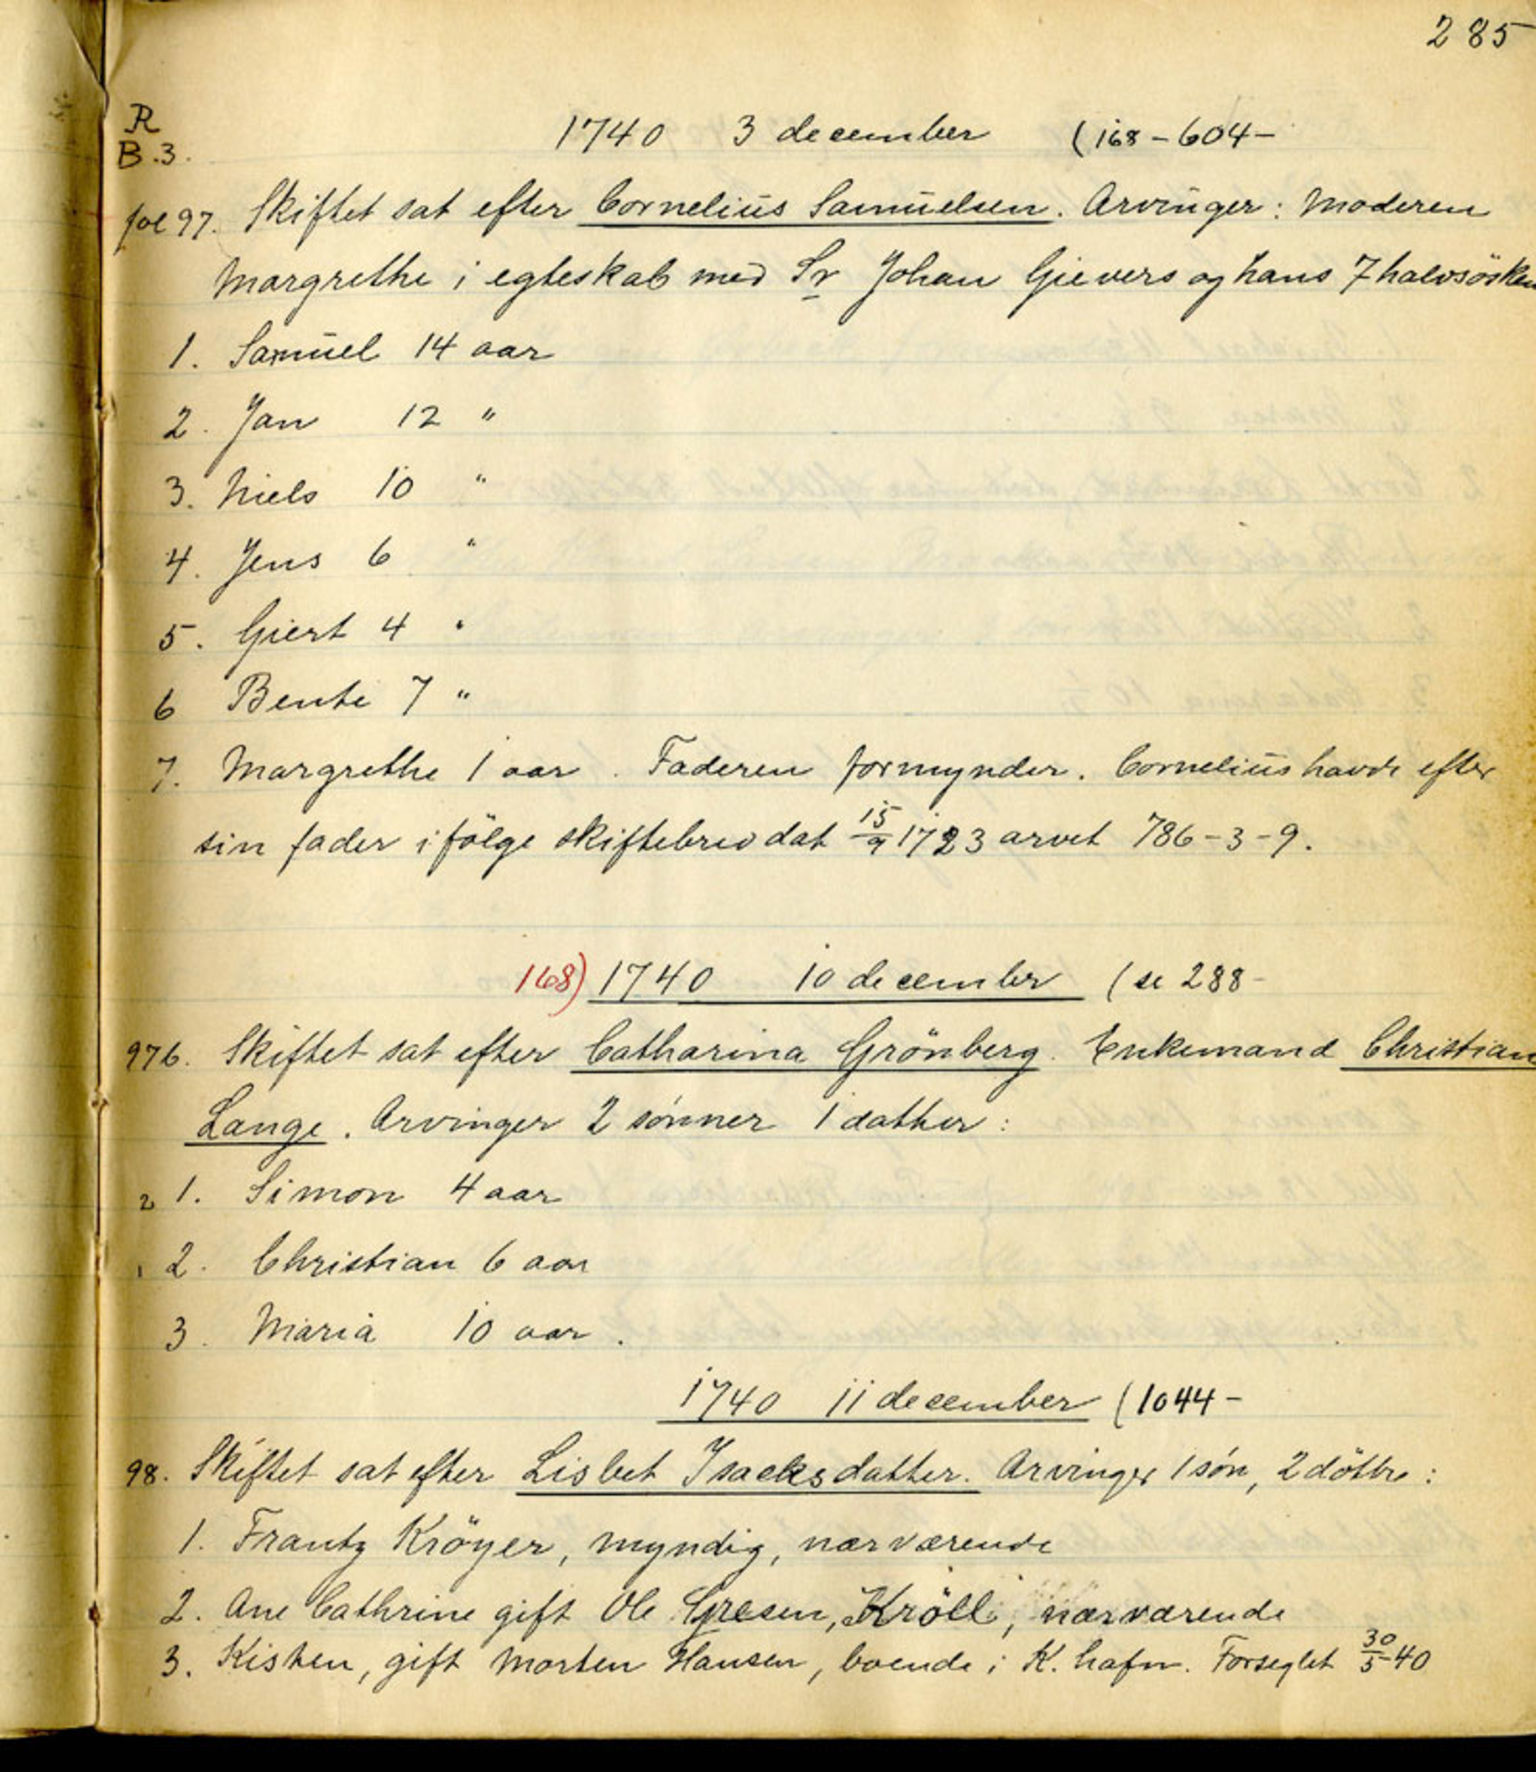 285
R
B.3.
1740 3 december (168-604-
fol 97. Skiftet sat efter Cornelius Samuelsen. Arvinger: Moderen
Margrethe i egteskab med Sr Johan Gievers og hans 7 halvsösken
1. Samuel 14 aar
2. Jan 12 "
3. Niels 10 "
4. Jens 6 "
5. Giert 4 "
6 Bente 7 "
7. Margrethe 1 aar. Faderen formynder. Cornelius havde efter
sin fader ifölge skiftebrev dat 15/9 1723 arvet 786-3-9.
168) 1740 10 december (se 288-
976. Skiftet sat efter Catharina Grönberg. Enkemand Christian
Lange. Arvinger 2 sönner 1 datter:
2 1. Simon 4 aar
1 2. Christian 6 aar
3. Maria 10 aar.
1740 11 december (1044-
98. Skiftet sat efter Lisbet Isacksdatter. Arvinger 1 sön, 2 döttre:
1. Frantz Kröyer, myndig, nærværende
2. Ane Cathrine gift Ole Gresen, Kröll, nærværende
3. Kisten, gift Morten Hansen, boende i K.hafn. Forseglet 30/5-40